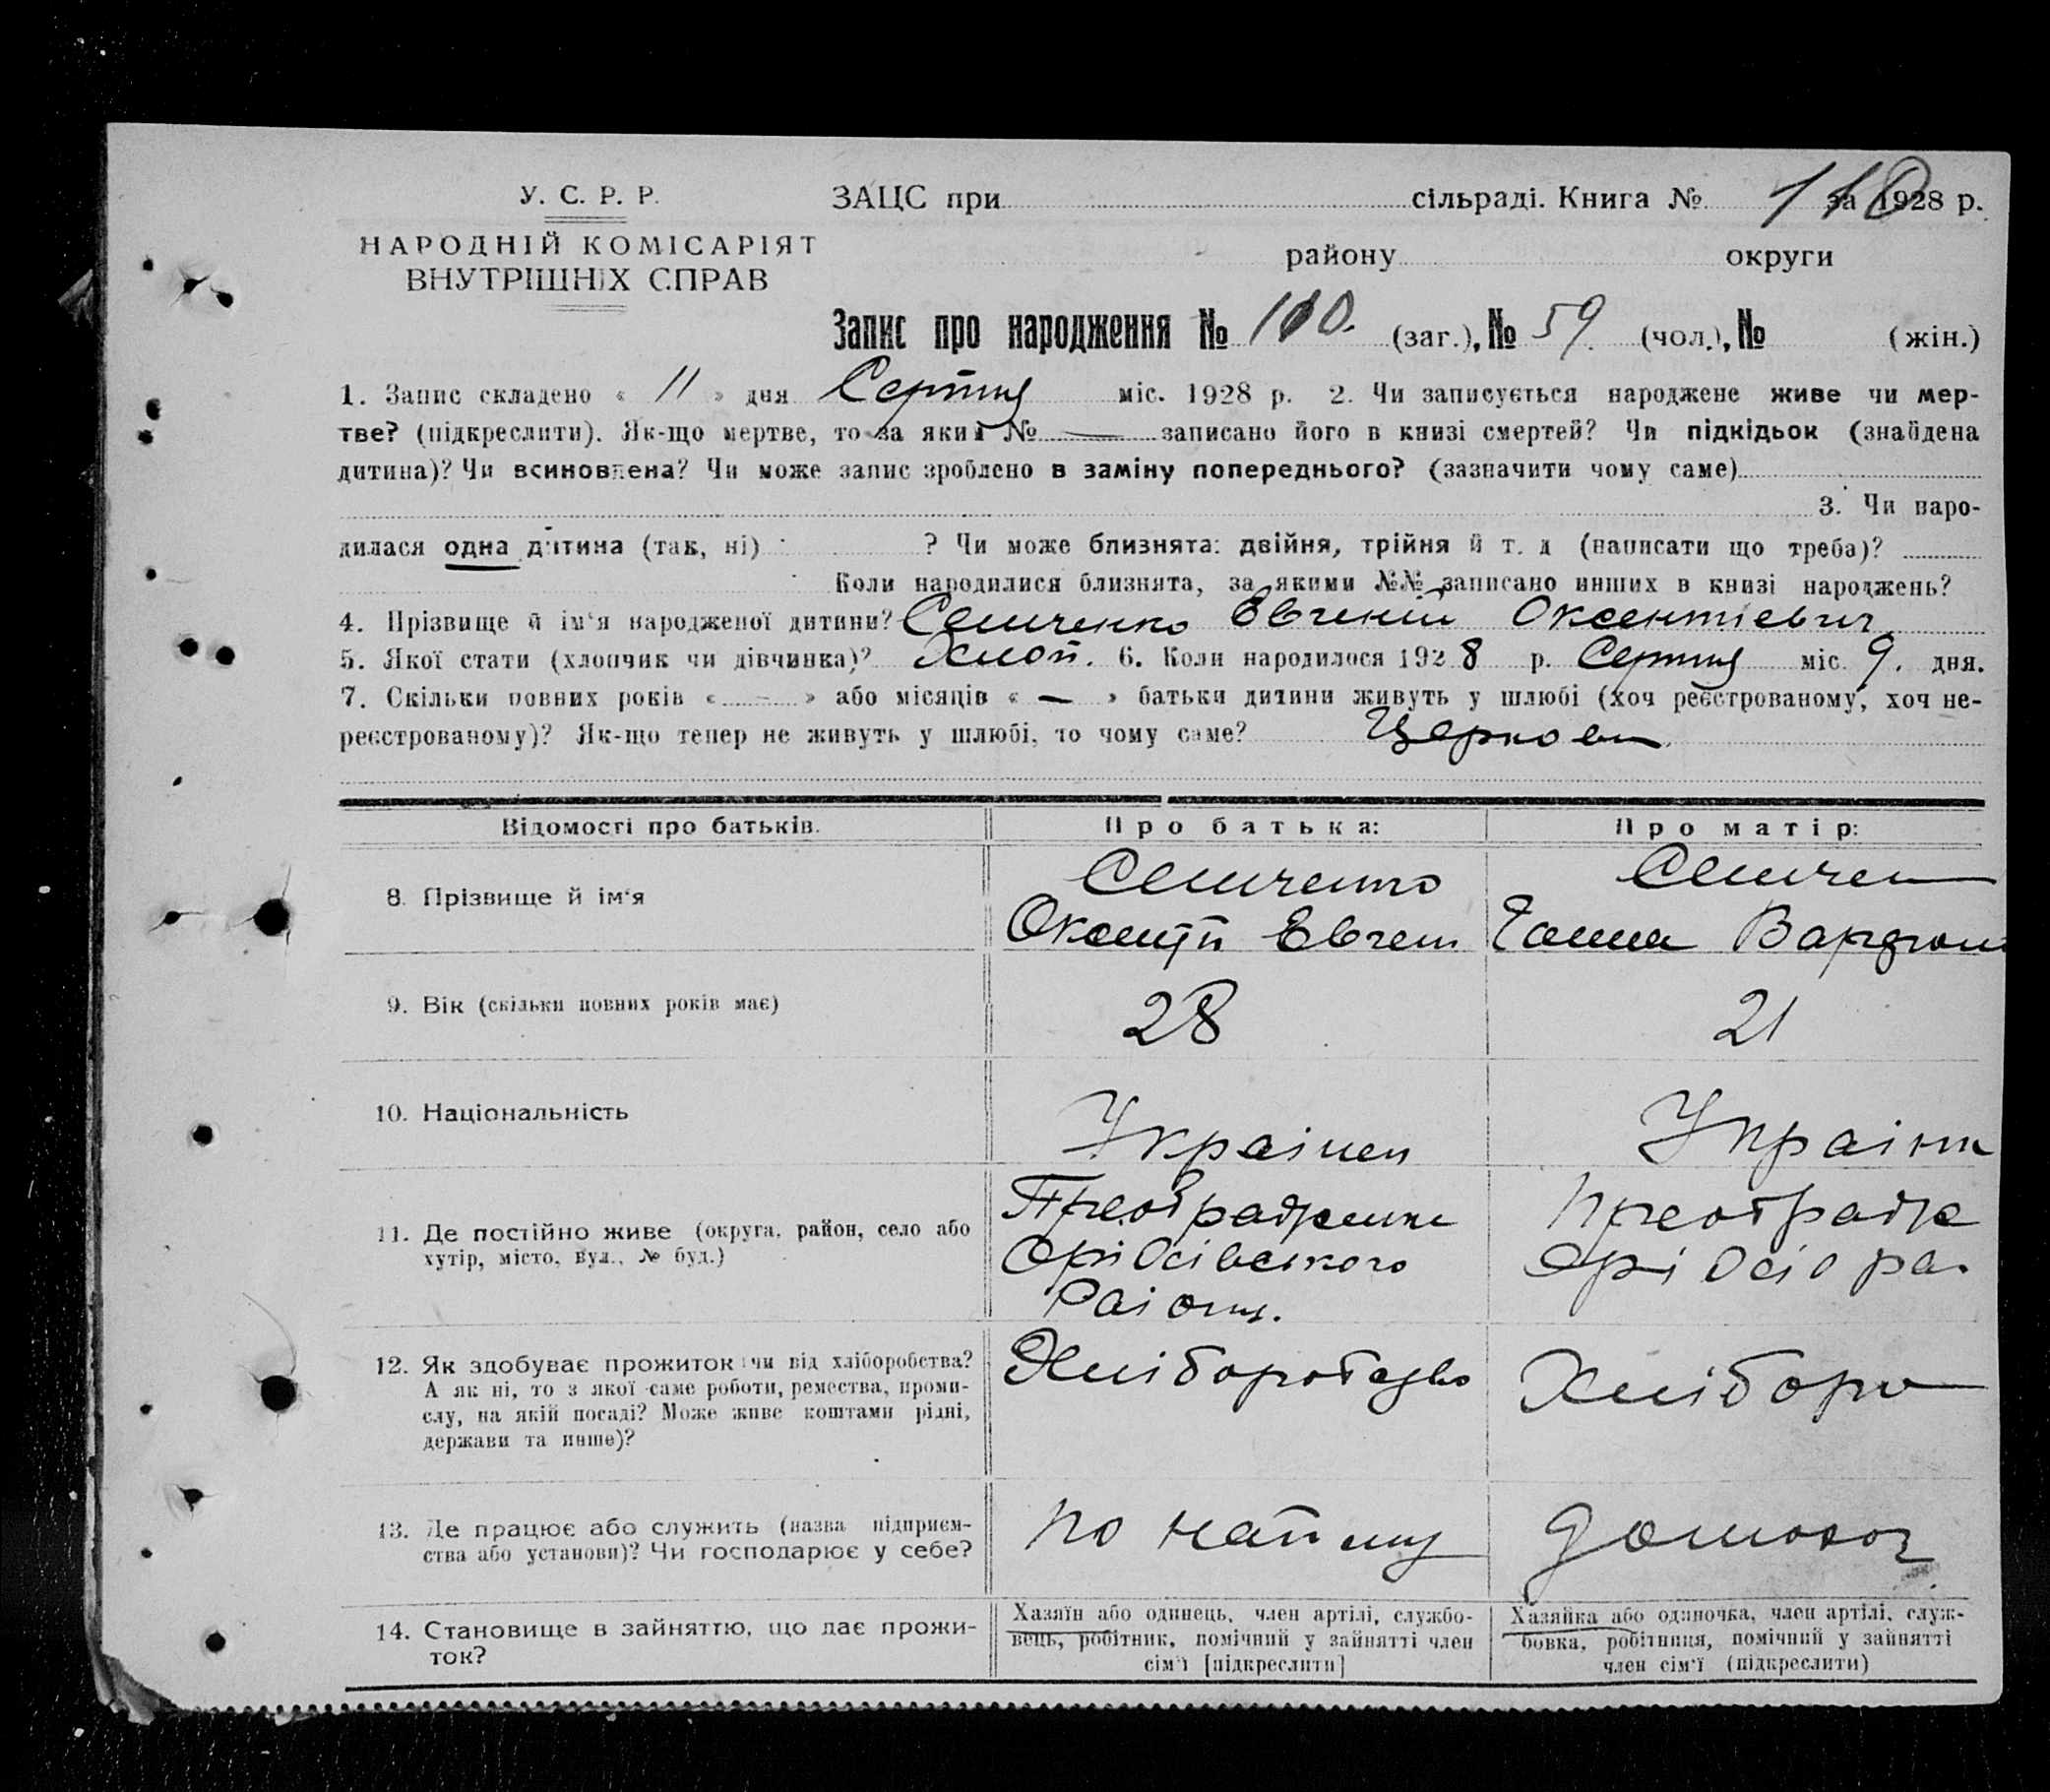 У. С. Р. Р.
НАРОДНІЙ КОМІСАРІЯТ
ВНУТРІШНІХ СПРАВ
ЗАЦС при сільраді. Книга № за 1928 р.
району округи
Запис про народження № 110. (заг.), № 59. (чол.), № (жін.)
1. Запис складено « 11 » дня Серпня міс. 1928 р. 2. Чи записується народжене живе чи мер-
тве? (підкреслити). Як-що мертве, то за яким № — записано його в книзі смертей? Чи підкідьок (знайдена
дитина)? Чи всиновлена? Чи може запис зроблено в заміну попереднього? (зазначити чому саме)
3. Чи наро-
дилася одна дитина (так, ні) ? Чи може близнята: двійня, трійня й т. д (написати що треба)?
Коли народилися близнята, за якими №№ записано инших в книзі народжень?
4. Прізвище й ім'я народженої дитини? Семченко Євгеній Оксентіевич
5. Якої стати (хлопчик чи дівчинка)? Хлоп. 6. Коли народилося 1928 р. Серпня міс. 9. дня.
7. Скільки повних років « — » або місяців « — » батьки дитини живуть у шлюбі (хоч реєстрованому, хоч не-
реєстрованому)? Як-що тепер не живуть у шлюбі, то чому саме? Церковн
Відомості про батьків. Про батька: Про матір:
8. Прізвище й ім'я
Семченко
Оксентій Євген
Семчен
Ганна
9. Вік (скільки повних років має) 28 21
10. Національність Украінец Україн
11. Де постійно живе (округа, район, село або
хутір, місто, вул., № буд.)
Раіону.
12. Як здобуває прожиток чи від хліборобства?
А як ні, то з якої саме роботи, ремества, проми-
слу, на якій посаді? Може живе коштами рідні,
держави та инше)?
Хліборобство
Хліборо
13. Де працює або служить (назва підприєм-
ства або установи)? Чи господарює у себе?
по найму
домохоз
14. Становище в зайняттю, що дає прожи-
ток?
Хазяїн або одинець, член артілі, службо-
вець, робітник, помічний у зайнятті член
сім'ї [підкреслити]
Хазяйка або одиночка, член артілі, служ-
бовка, робітниця, помічний у зайнятті
член сім'ї (підкреслити)